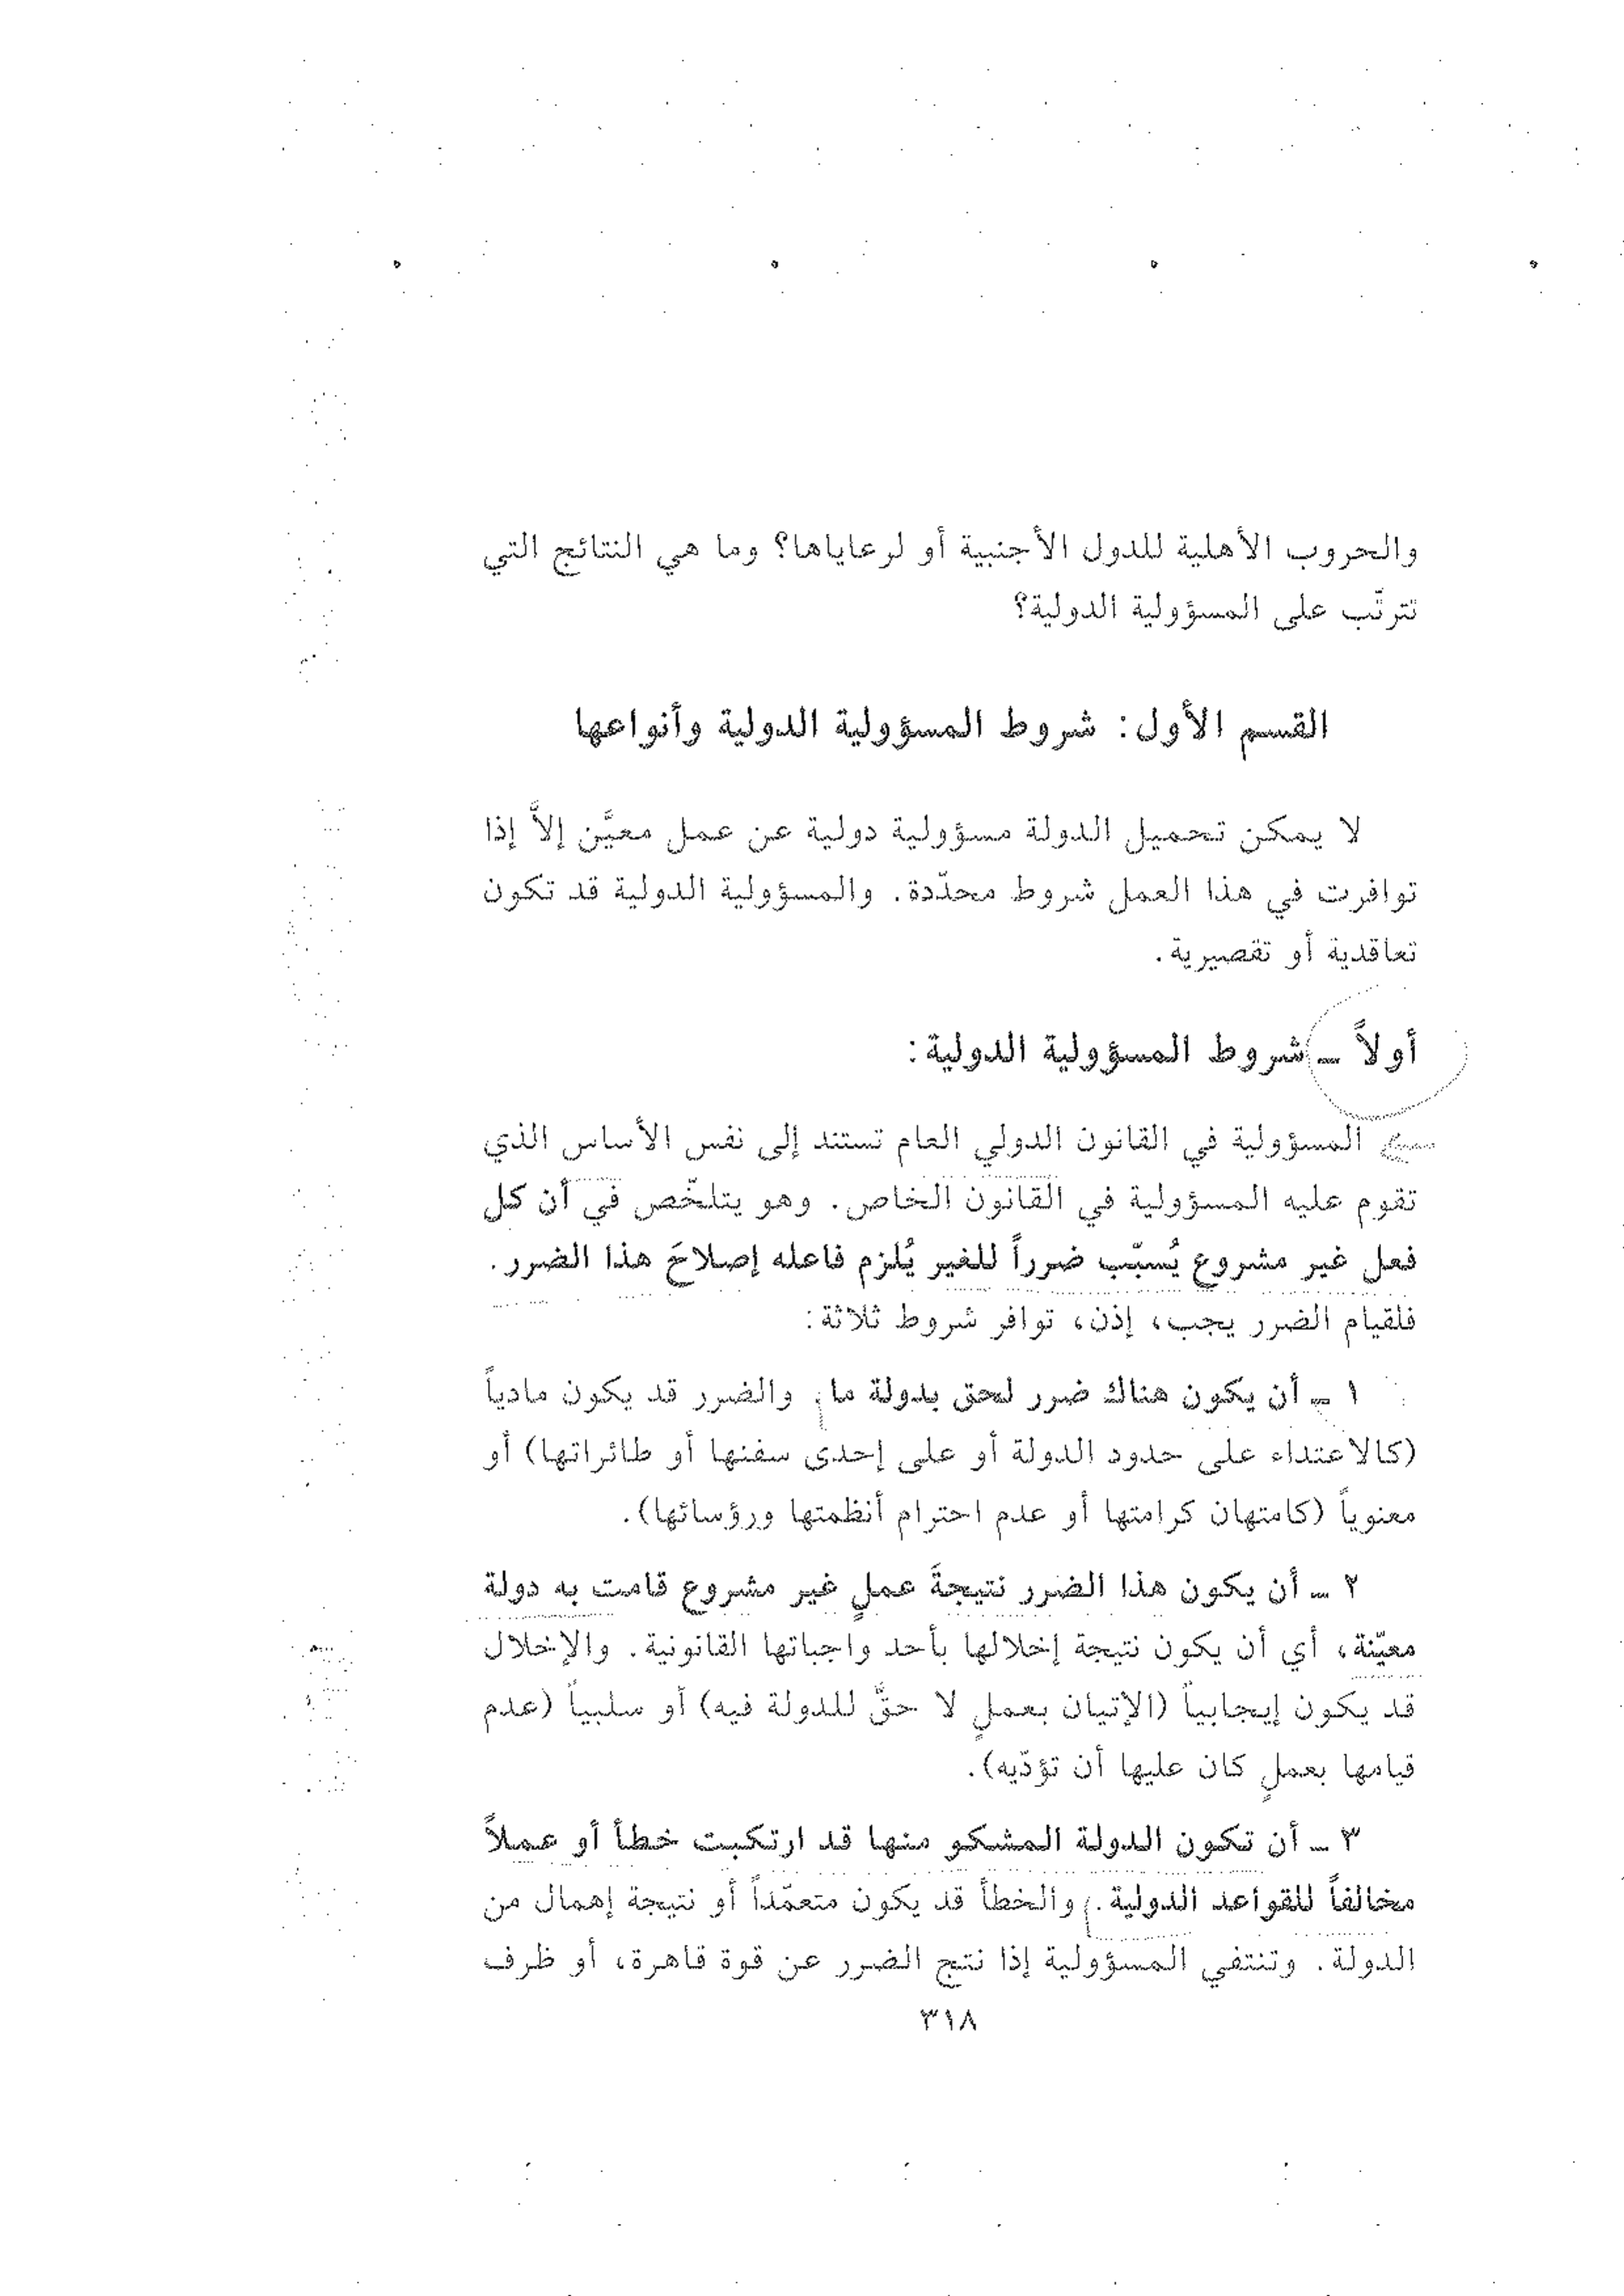 والحروب الأهلية للدول الأجنبية أو لرعاياها؟ وما هي النتائج التي
تترتّب على المسؤولية الدولية؟
القسم الأول: شروط المسؤولية الدولية وأنواعها
لا يمكن تحميل الدولة مسؤولية دولية عن عمل معيَّن إلاَّ إذا
توافرت في هذا العمل شروط محدّدة. والمسؤولية الدولية قد تكون
تعاقدية أو تقصيرية.
أولاً ـ شروط المسؤولية الدولية:
المسؤولية في القانون الدولي العام تستند إلى نفس الأساس الذي
تقوم عليه المسؤولية في القانون الخاص. وهو يتلخّص في أن كل
فعل غير مشروع يُسبّب ضرراً للغير يُلزم فاعله إصلاحَ هذا الضرر.
فلقيام الضرر يجب، إذن، توافر شروط ثلاثة:
١ ـ أن يكون هناك ضرر لحق بدولة ما. والضرر قد يكون مادياً
(كالاعتداء على حدود الدولة أو على إحدى سفنها أو طائراتها) أو
معنوياً (كامتهان كرامتها أو عدم احترام أنظمتها ورؤسائها).
٢ ـ أن يكون هذا الضرر نتيجةَ عملٍ غير مشروع قامت به دولة
معيّنة، أي أن يكون نتيجة إخلالها بأحد واجباتها القانونية. والإخلال
قد يكون إيجابياً (الإتيان بعملٍ لا حقَّ للدولة فيه) أو سلبياً (عدم
قيامها بعملٍ كان عليها أن تؤدّيه).
٣ ـ أن تكون الدولة المشكو منها قد ارتكبت خطأ أو عملاً
مخالفاً للقواعد الدولية. والخطأ قد يكون متعمّداً أو نتيجة إهمال من
الدولة. وتنتفي المسؤولية إذا نتج الضرر عن قوة قاهرة، أو ظرف
٣١٨